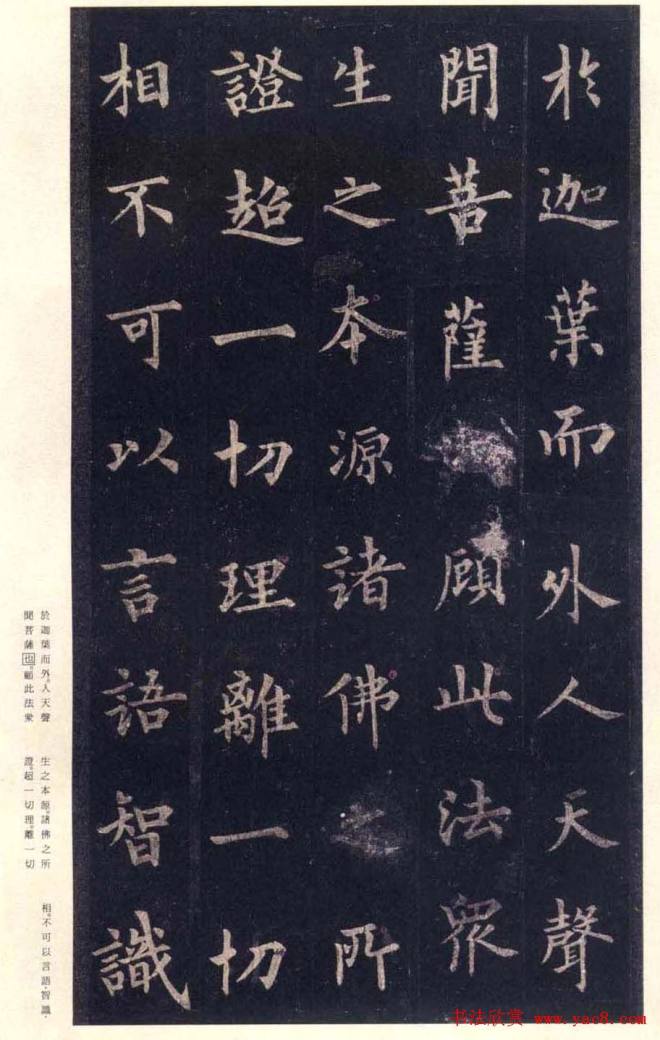 於迦葉而外人天聲
聞菩薩顧此法眾
生之本源諸佛之所
證超一切理離一切
相不可以言語智識
於迦葉而外。人天聲
聞菩薩也。顧此法衆
生之本源。諸佛之所
證。超一切理。離一切
相。不可以言語、智識、
书法欣赏 www.yac8.com